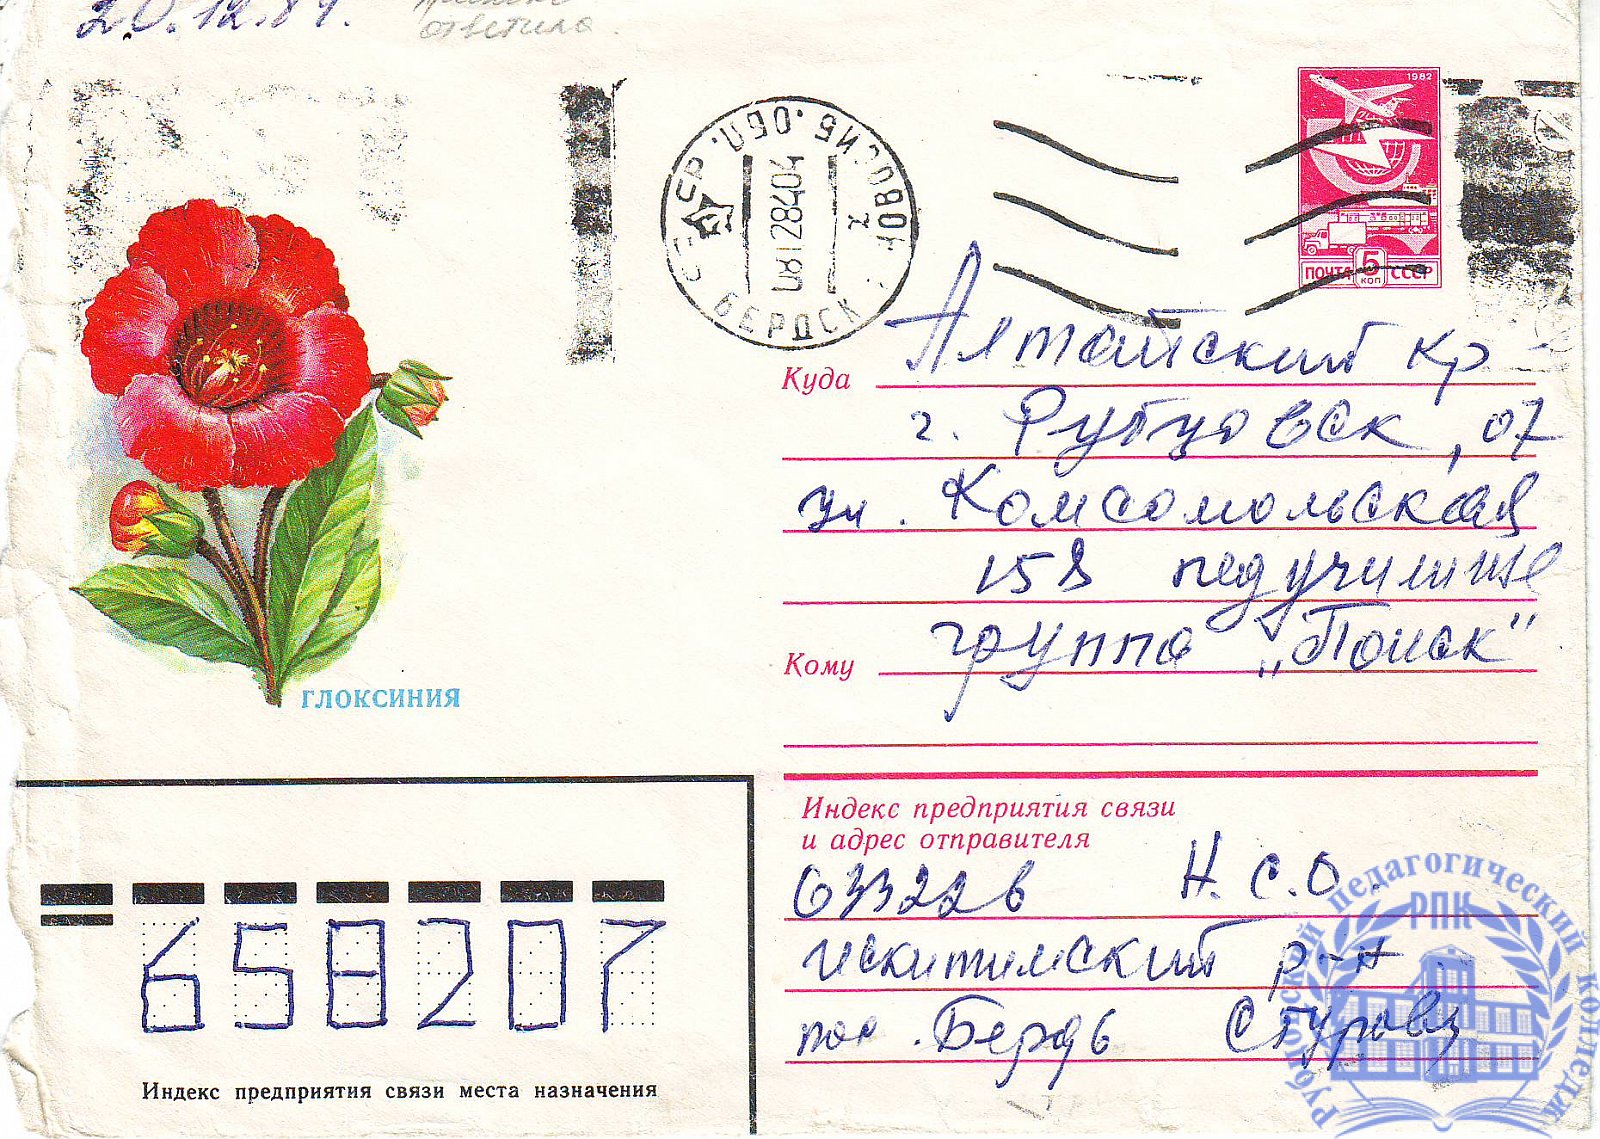 20.12.84.
ответила.
1982
ПОЧТА 5 КОП СССР
СССР НОВОСИБ. ОБЛ.
БЕРДСК
08128404
Куда Алтайский кр -
г. Рубцовск, 07
ул. Комсомольская
158 педучилище
Кому группа „Поиск"
ГЛОКСИНИЯ
Индекс предприятия связи
и адрес отправителя
633226 Н.С.О.
Искитимский р-н.
пос. Бердь
658207
Индекс предприятия связи места назначения
Рубцовский педагогический колледж
РПК